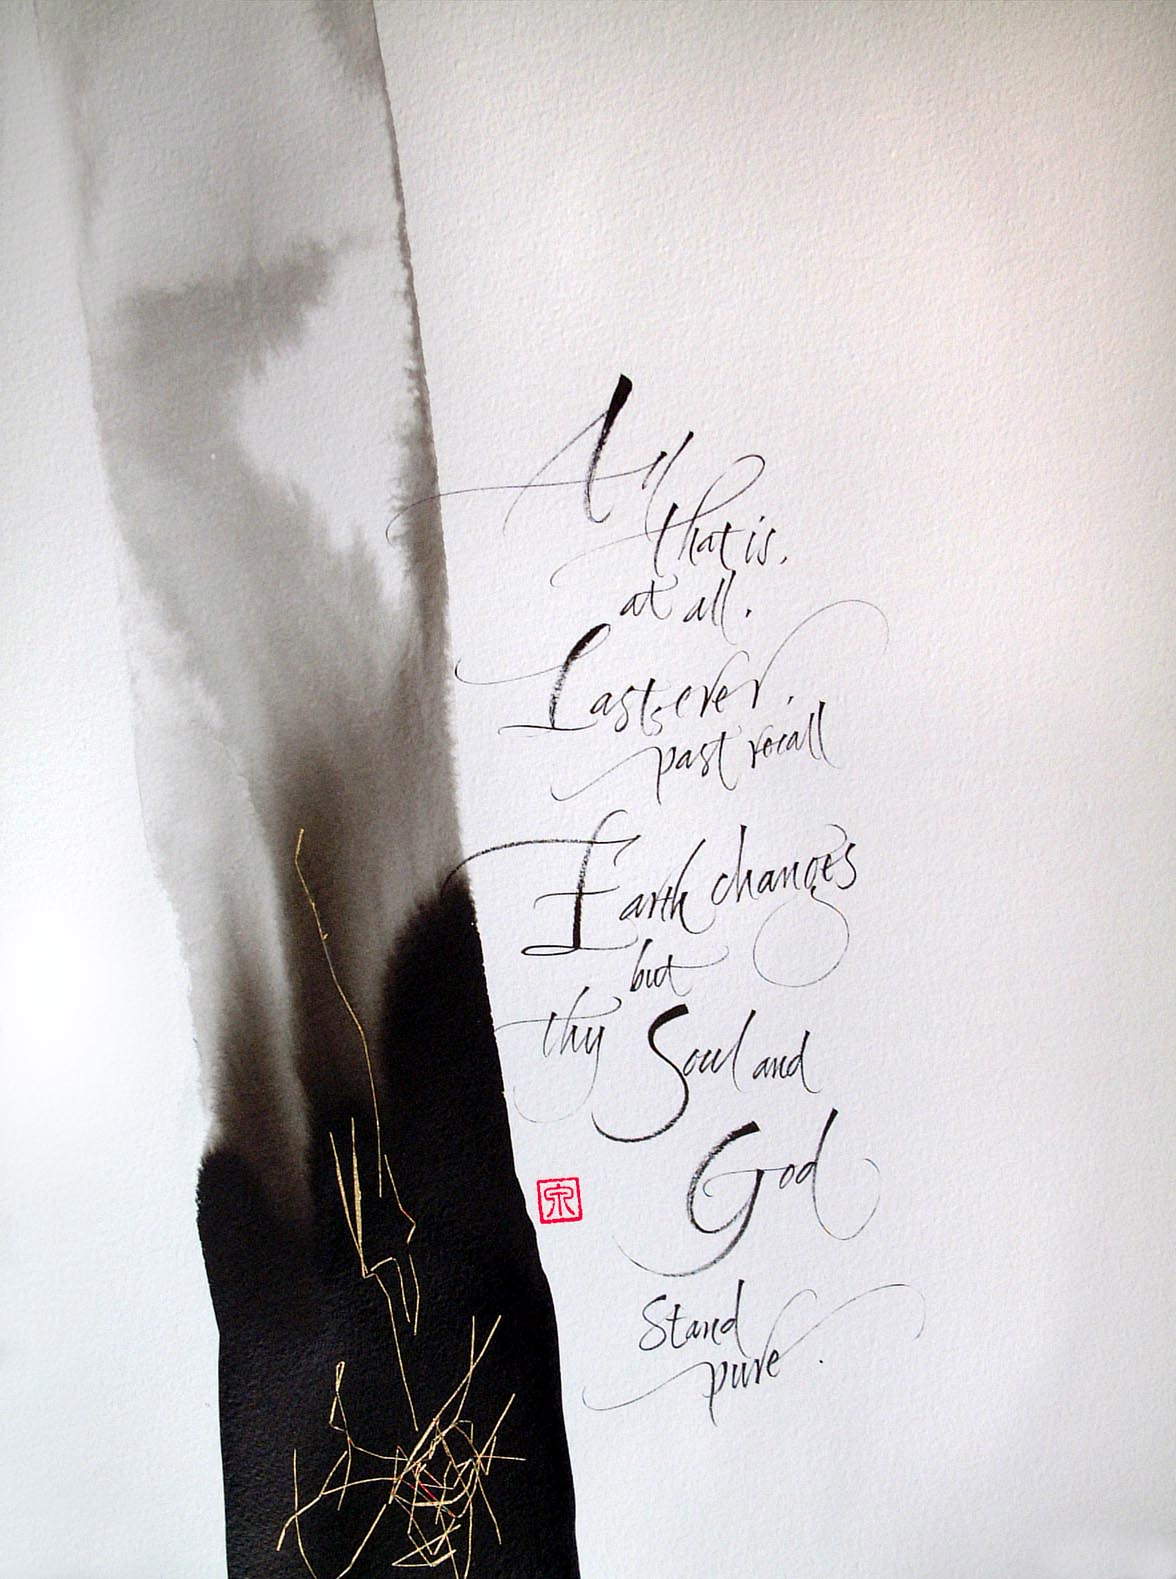 All
that is,
at all,
Lasts ever,
past recall
Earth changes
but
thy Soul and
God
Stand
pure.